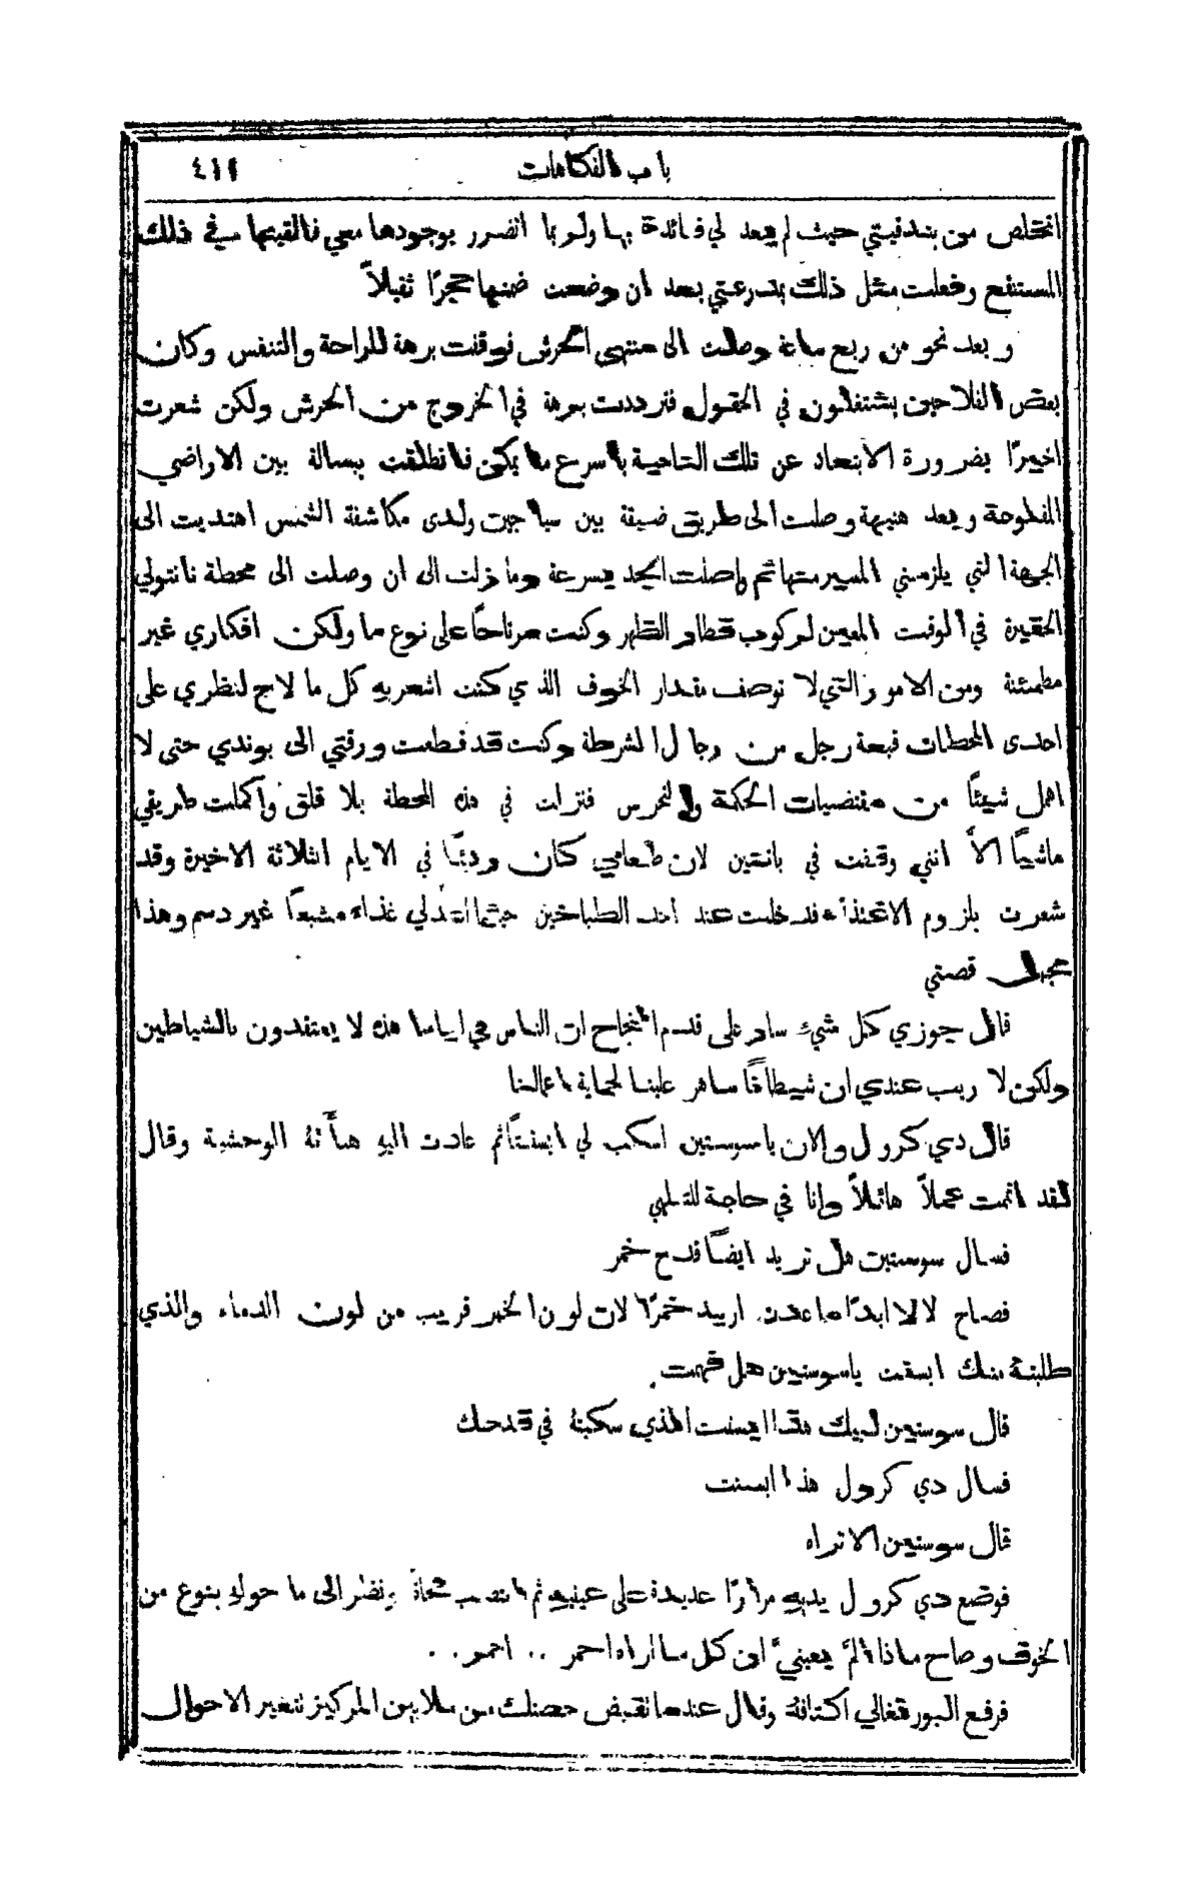 باب الفكاهات ٤١١
اتخلص من بندقيتي حيث لم يعد لي فائدة بها ولربما اتضرر بوجودها معي فالقيتها في ذلك
المستنقع وفعلت مثل ذلك بتدرعتي بعد ان وضعت ضمنها حجرًا ثقيلاً
وبعد نحو من ربع ساعة وصلت الى منتهى الحرش فوقفت برهة للراحة والتنفس وكان
بعض الفلاحين يشتغلون في الحقول فترددت برهة في الخروج من الحرش ولكن شعرت
اخيرًا بضرورة الابتعاد عن تلك الناحية باسرع ما يمكن فانطلقت ببسالة بين الاراضي
المفلوحة وبعد هنيهة وصلت الى طريق ضيقة بين سياجين ولدى مكاشفة الشمس اهتديت الى
الجهة التي يلزمني المسير منها ثم واصلت الجد بسرعة وما زلت الى ان وصلت الى محطة نانتولي
الحقيرة في الوقت المعين لركوب قطار الظهر وكنت مرتاحًا على نوع ما ولكن افكاري غير
مطمئنة ومن الامور التي لا توصف مقدار الخوف الذي كنت اشعر به كل ما لاح لنظري على
احدى المحطات قبعة رجل من رجال الشرطة وكنت قد قطعت ورقتي الى بوندي حتى لا
اهمل شيئًا من مقتضيات الحكمة والتحرس فنزلت في هذه المحطة بلا قلق واكملت طريقي
ماشيًا الاَّ انني وقفت في بانتين لان طعامي كان رديئًا في الايام الثلاثة الاخيرة وقد
شعرت بلزوم الاغتذاء فدخلت عند احد الطباخين حيثما اعد لي غذاء مشبعًا غير دسم وهذا
مجمل قصتي
قال جوزي كل شيء سار على قدم النجاح ان الناس في ايامنا هذه لا يعتقدون بالشياطين
ولكن لا ريب عندي ان شيطانًا ساهر علينا لحماية اعمالنا
قال دي كرول والان يا سوستين اسكب لي ابسنتًا ثم عادت اليه هيأته الوحشية وقال
لقد اتممت عملاً هائلاً وانا في حاجة للتلهي
فسال سوستين هل تريد ايضًا قدح خمر
فصاح لا لا ابدًا ما عدت اريد خمرًا لان لون الخمر قريب من لون الدماء والذي
طلبته منك ابسنت يا سوستين هل فهمت
قال سوستين لبيك هذا ابسنت الذي سكبته في قدحك
فسال دي كرول هذا ابسنت
قال سوستين الا تراه
فوضع دي كرول يديه مرارًا عديدة على عينيه ثم انتصب فجأة ونظر الى ما حوله بنوع من
الخوف وصاح ماذا ألمَّ بعينيَّ ان كل ما اراه احمر .. احمر ..
فرفع البورتغالي اكتافه وقال عندما تقبض حصتك من ملايين المركيز تتغير الاحوال